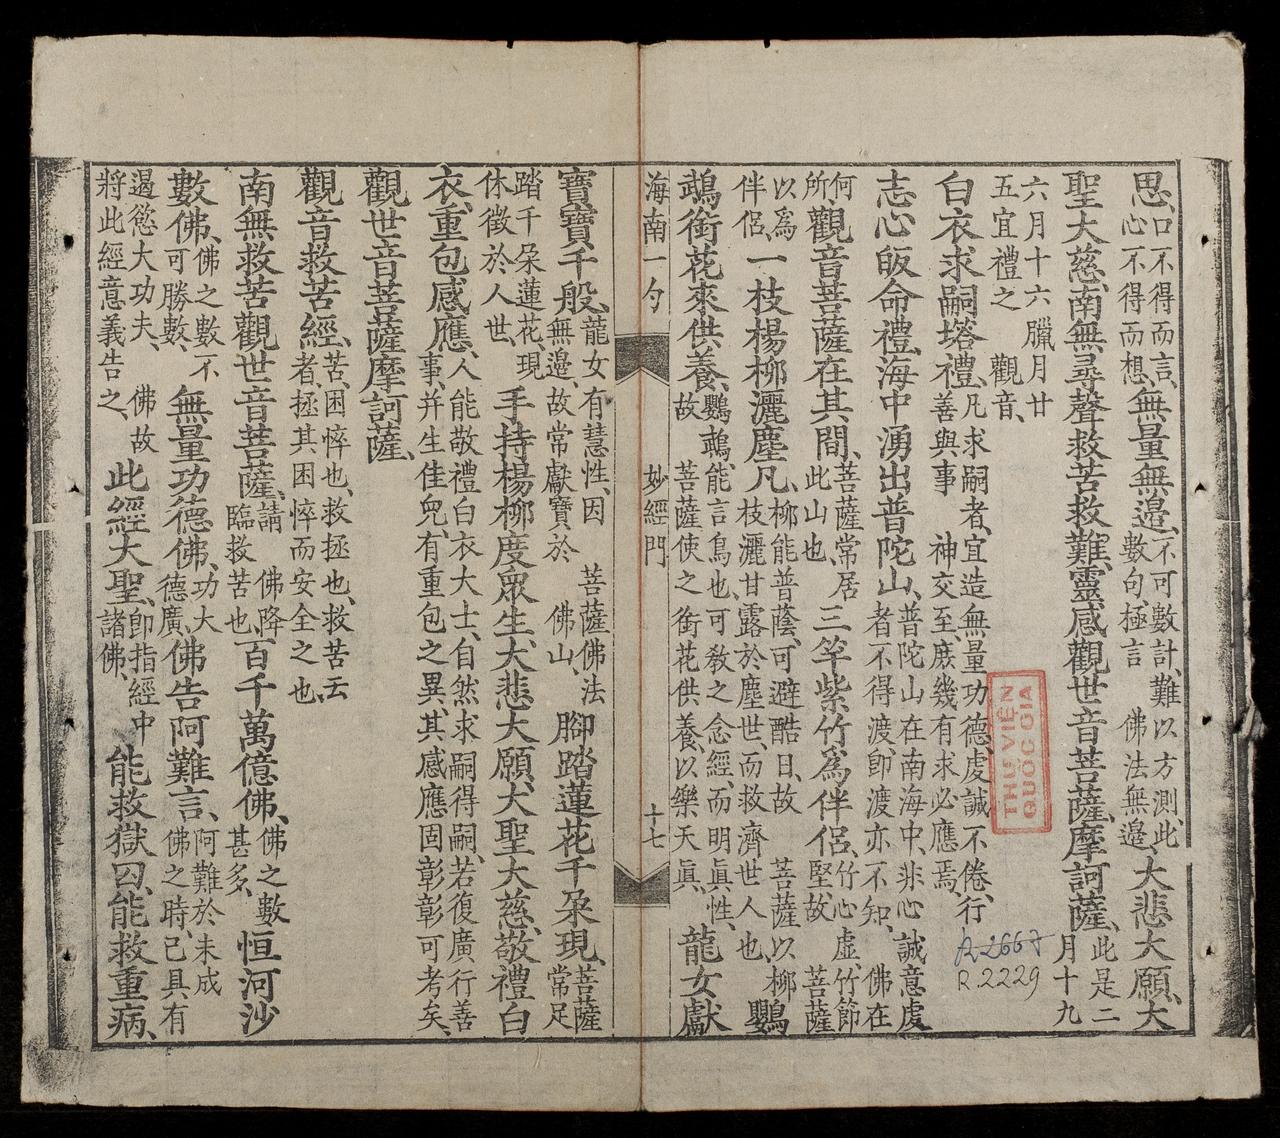 思、口不得而言、心不得而想、無量無邊、不可數計、難以方測、此數句、極言　佛法無邊大悲大願、大
聖大慈、南無尋聲救苦救難、靈感觀世音菩薩、摩訶薩、此是二月十九
六月十六　臘月廿五宜禮之　觀音、
白衣求嗣塔禮、凡求嗣者、宜造無量功德、虔誠不倦、行善與事　神交至、庶幾有求必應焉、
志心皈命禮、海中湧出普陀山、普陀山在南海中、非心誠意虔者不得渡、卽渡亦不知、佛在
何所、觀音菩薩在其間、菩薩常居此山也　三竿紫竹爲伴侶、竹心虛、竹節堅、故　菩薩
以爲伴侶、一枝楊柳灑塵凡、柳能普蔭、可避酷日、故　菩薩以柳枝灑甘露於塵世、而救濟世人也、鸚
鵡銜花來供養、鸚鵡、能言鳥也、可敎之念經、而明眞性、故　菩薩使之銜花供養、以樂天眞、龍女獻
海南一勺　妙經門　十七
寶寶千般、龍女有慧性、因無邊、故常獻寶於　菩薩佛法　佛山、腳踏蓮花千朶現、菩薩常足
踏千朶蓮花、現休徵於人世、手持楊柳度眾生、大悲大願、大聖大慈、敬禮白
衣、重包感應、人能敬禮白衣大士、自然求嗣得嗣、若復廣行善事、并生佳兒、有重包之異、其感應固彰彰可考矣、
觀世音菩薩摩訶薩、
觀音救苦經、苦、困悴也、救、拯也、救苦云者、拯其困悴而安全之也、
南無救苦觀世音菩薩、請　佛降臨救苦也、百千萬億佛、佛之數甚多、恒河沙
數佛、佛之數、不可勝數、無量功德佛、功大德廣、佛告阿難言、阿難於未成佛之時、已具有
遏慾大功夫、佛故將此經意義告之、此經大聖、卽指經中諸佛、能救獄囚、能救重病、
THƯ VIỆN
QUỐC GIA
A-2667
R.2229